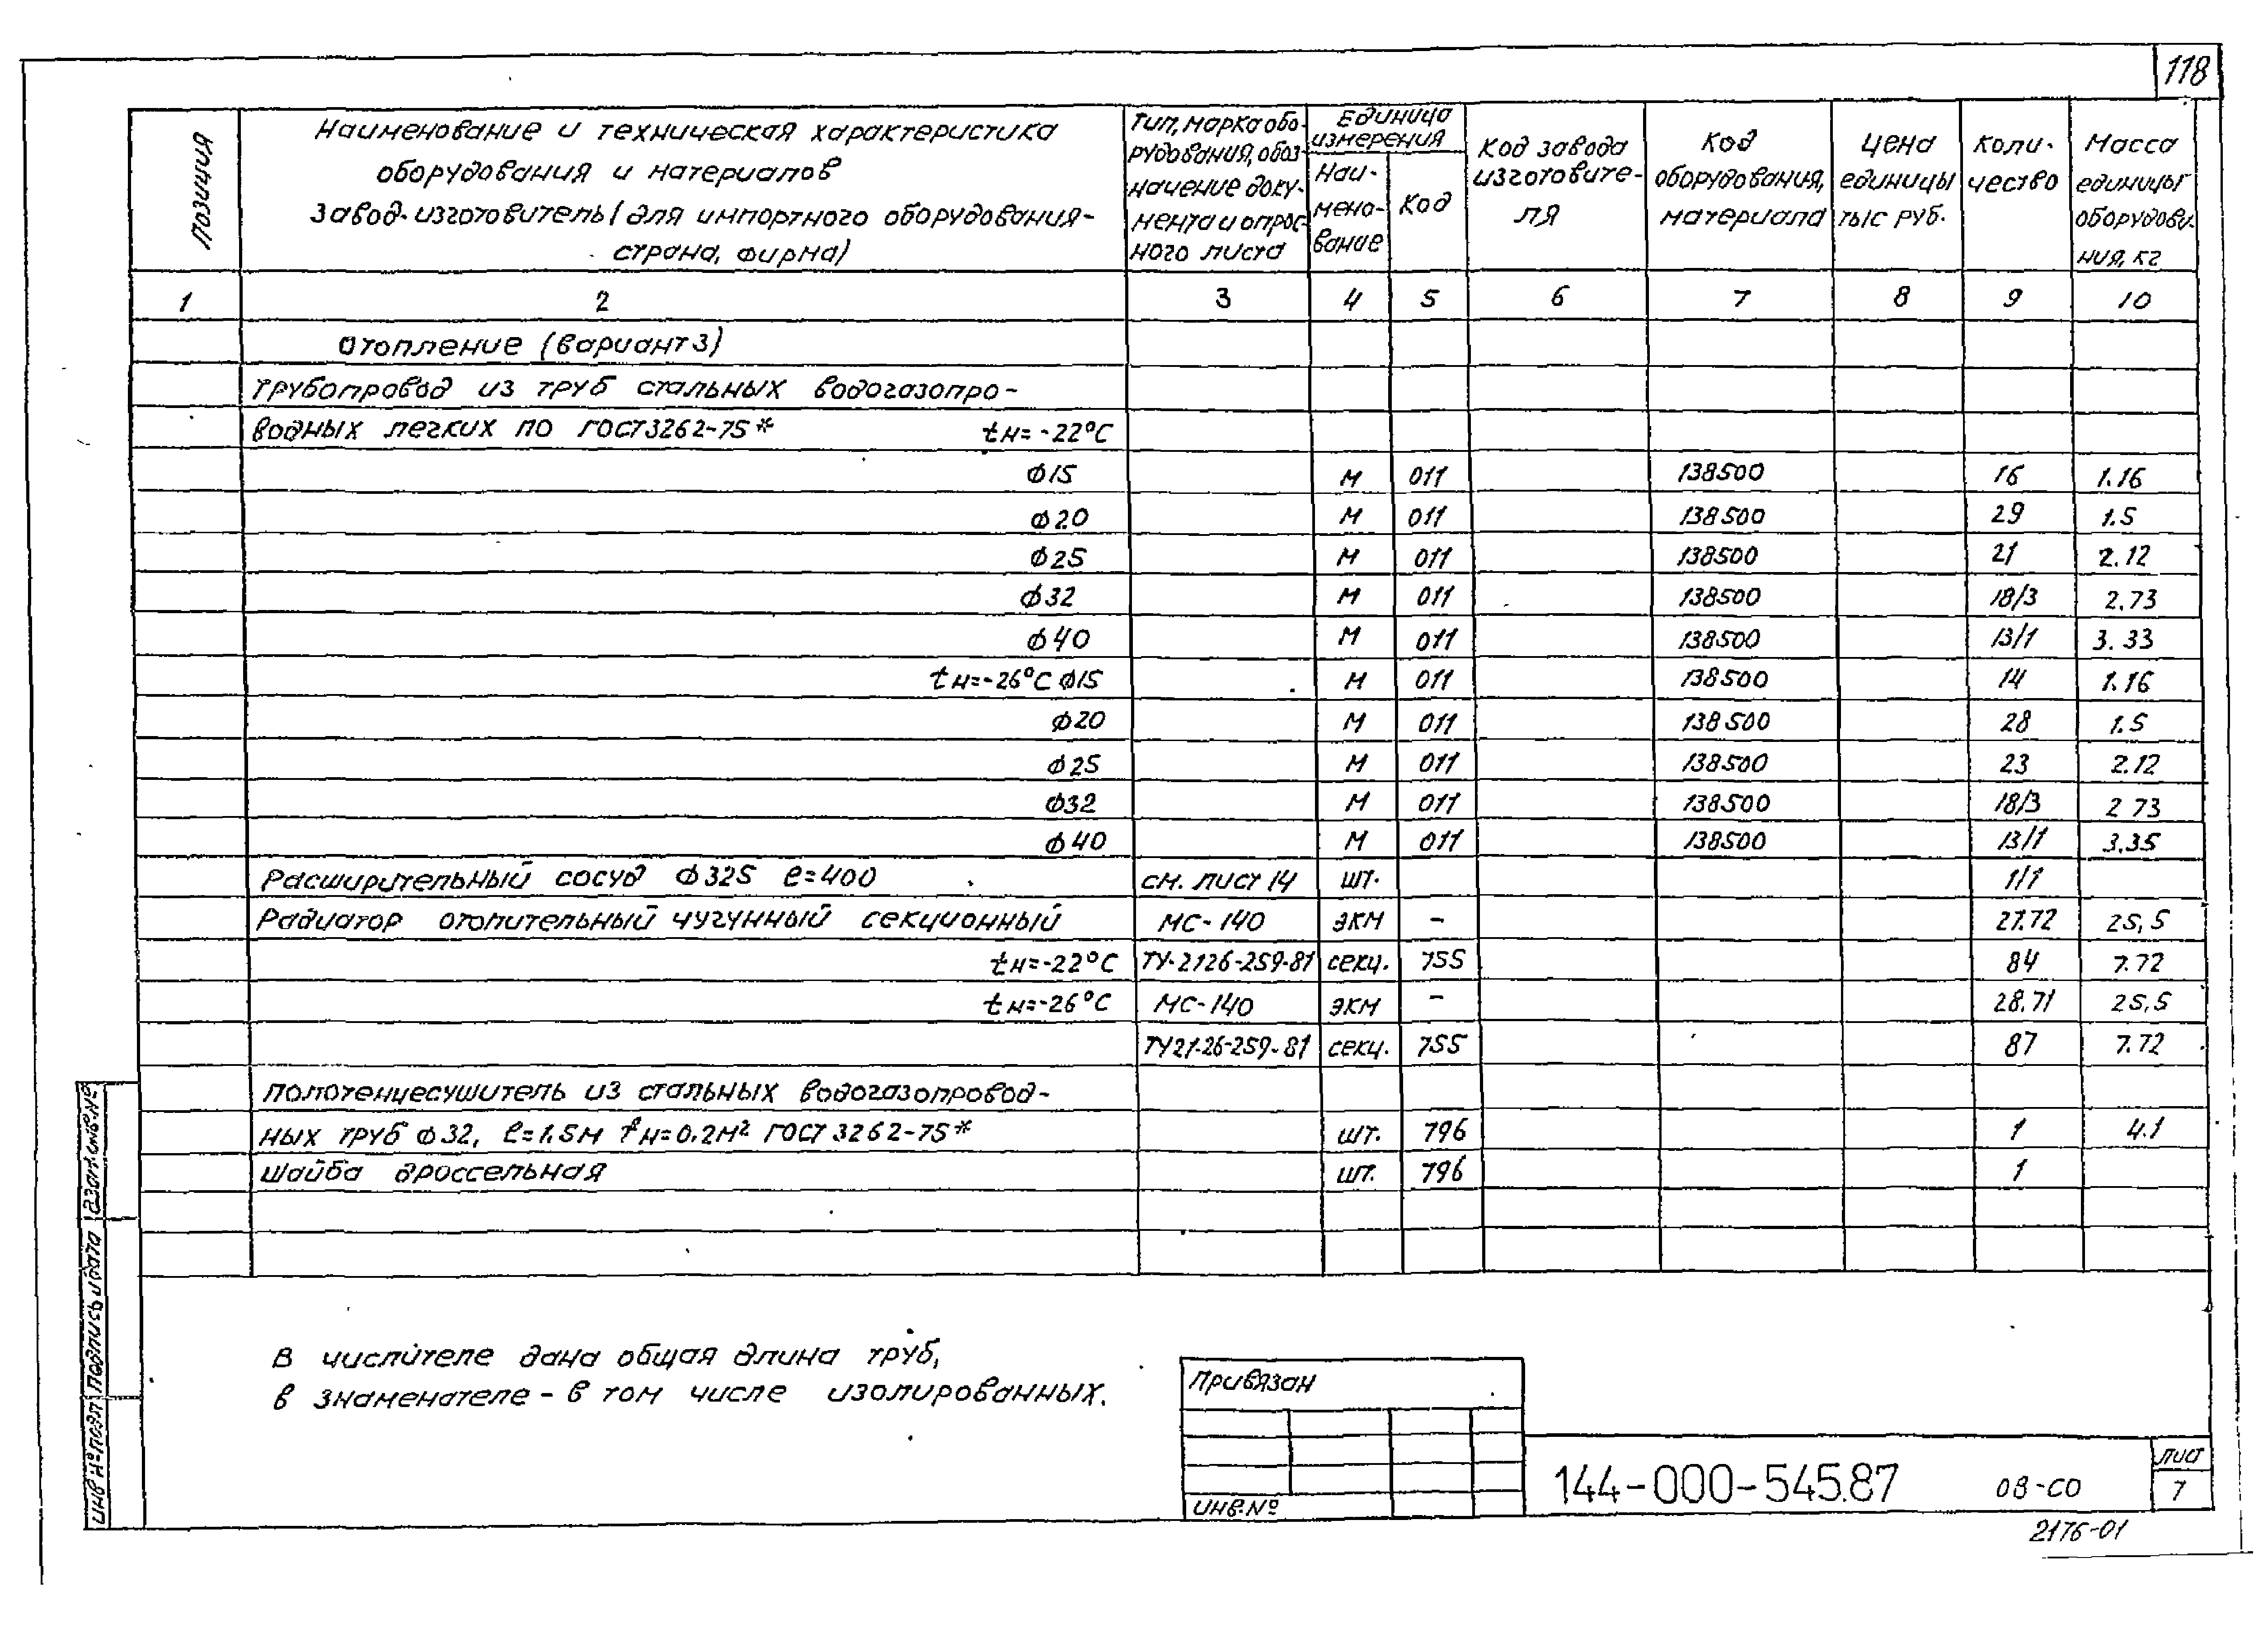 118
Позиция
Наименование и техническая характеристика
оборудования и материалов
Завод-изготовитель (для импортного оборудования-
страна, фирма)
Тип, марка обо-
рудования, обоз-
начение доку-
мента и опрос-
ного листа
Единица
измерения
Наи-
мено-
вание
Код
Код завода
изготовите-
ля
Код
оборудования,
материала
Цена
единицы
тыс руб.
Коли-
чество
Масса
единицы
оборудова-
ния, кг
1 2 3 4 5 6 7 8 9 10
Отопление (вариант 3)
Трубопровод из труб стальных водогазопро-
водных легких по ГОСТ 3262-75* tн=-22°С
Ф15 м 011 138500 16 1.16
Ф20 м 011 138500 29 1.5
Ф25 м 011 138500 21 2.12
Ф32 м 011 138500 18/3 2.73
Ф40 м 011 138500 13/1 3.33
tн=-26°С Ф15 м 011 138500 14 1.16
Ф20 м 011 138500 28 1.5
Ф25 м 011 138500 23 2.12
Ф32 м 011 138500 18/3 2 73
Ф40 м 011 138500 13/1 3.35
Расширительный сосуд Ф325 ℓ=400 см. лист 14 шт. 1/1
Радиатор отопительный чугунный секционный МС-140 экм - 27.72 25,5
tн=-22°С ТУ-2126-259-81 секц. 755 84 7.72
tн=-26°С МС-140 экм - 28.71 25,5
ТУ21-26-259-81 секц. 755 87 7.72
Полотенцесушитель из стальных водогазопровод-
ных труб Ф32, ℓ=1.5м fн=0.2м² ГОСТ 3262-75* шт. 796 1 4.1
Шайба дроссельная шт. 796 1
В числителе дана общая длина труб,
в знаменателе - в том числе изолированных.
Привязан
Инв.№
144-000-545.87
08-СО
Лист
7
2176-01
Взам.инв.№
Подпись и дата
Инв №подл